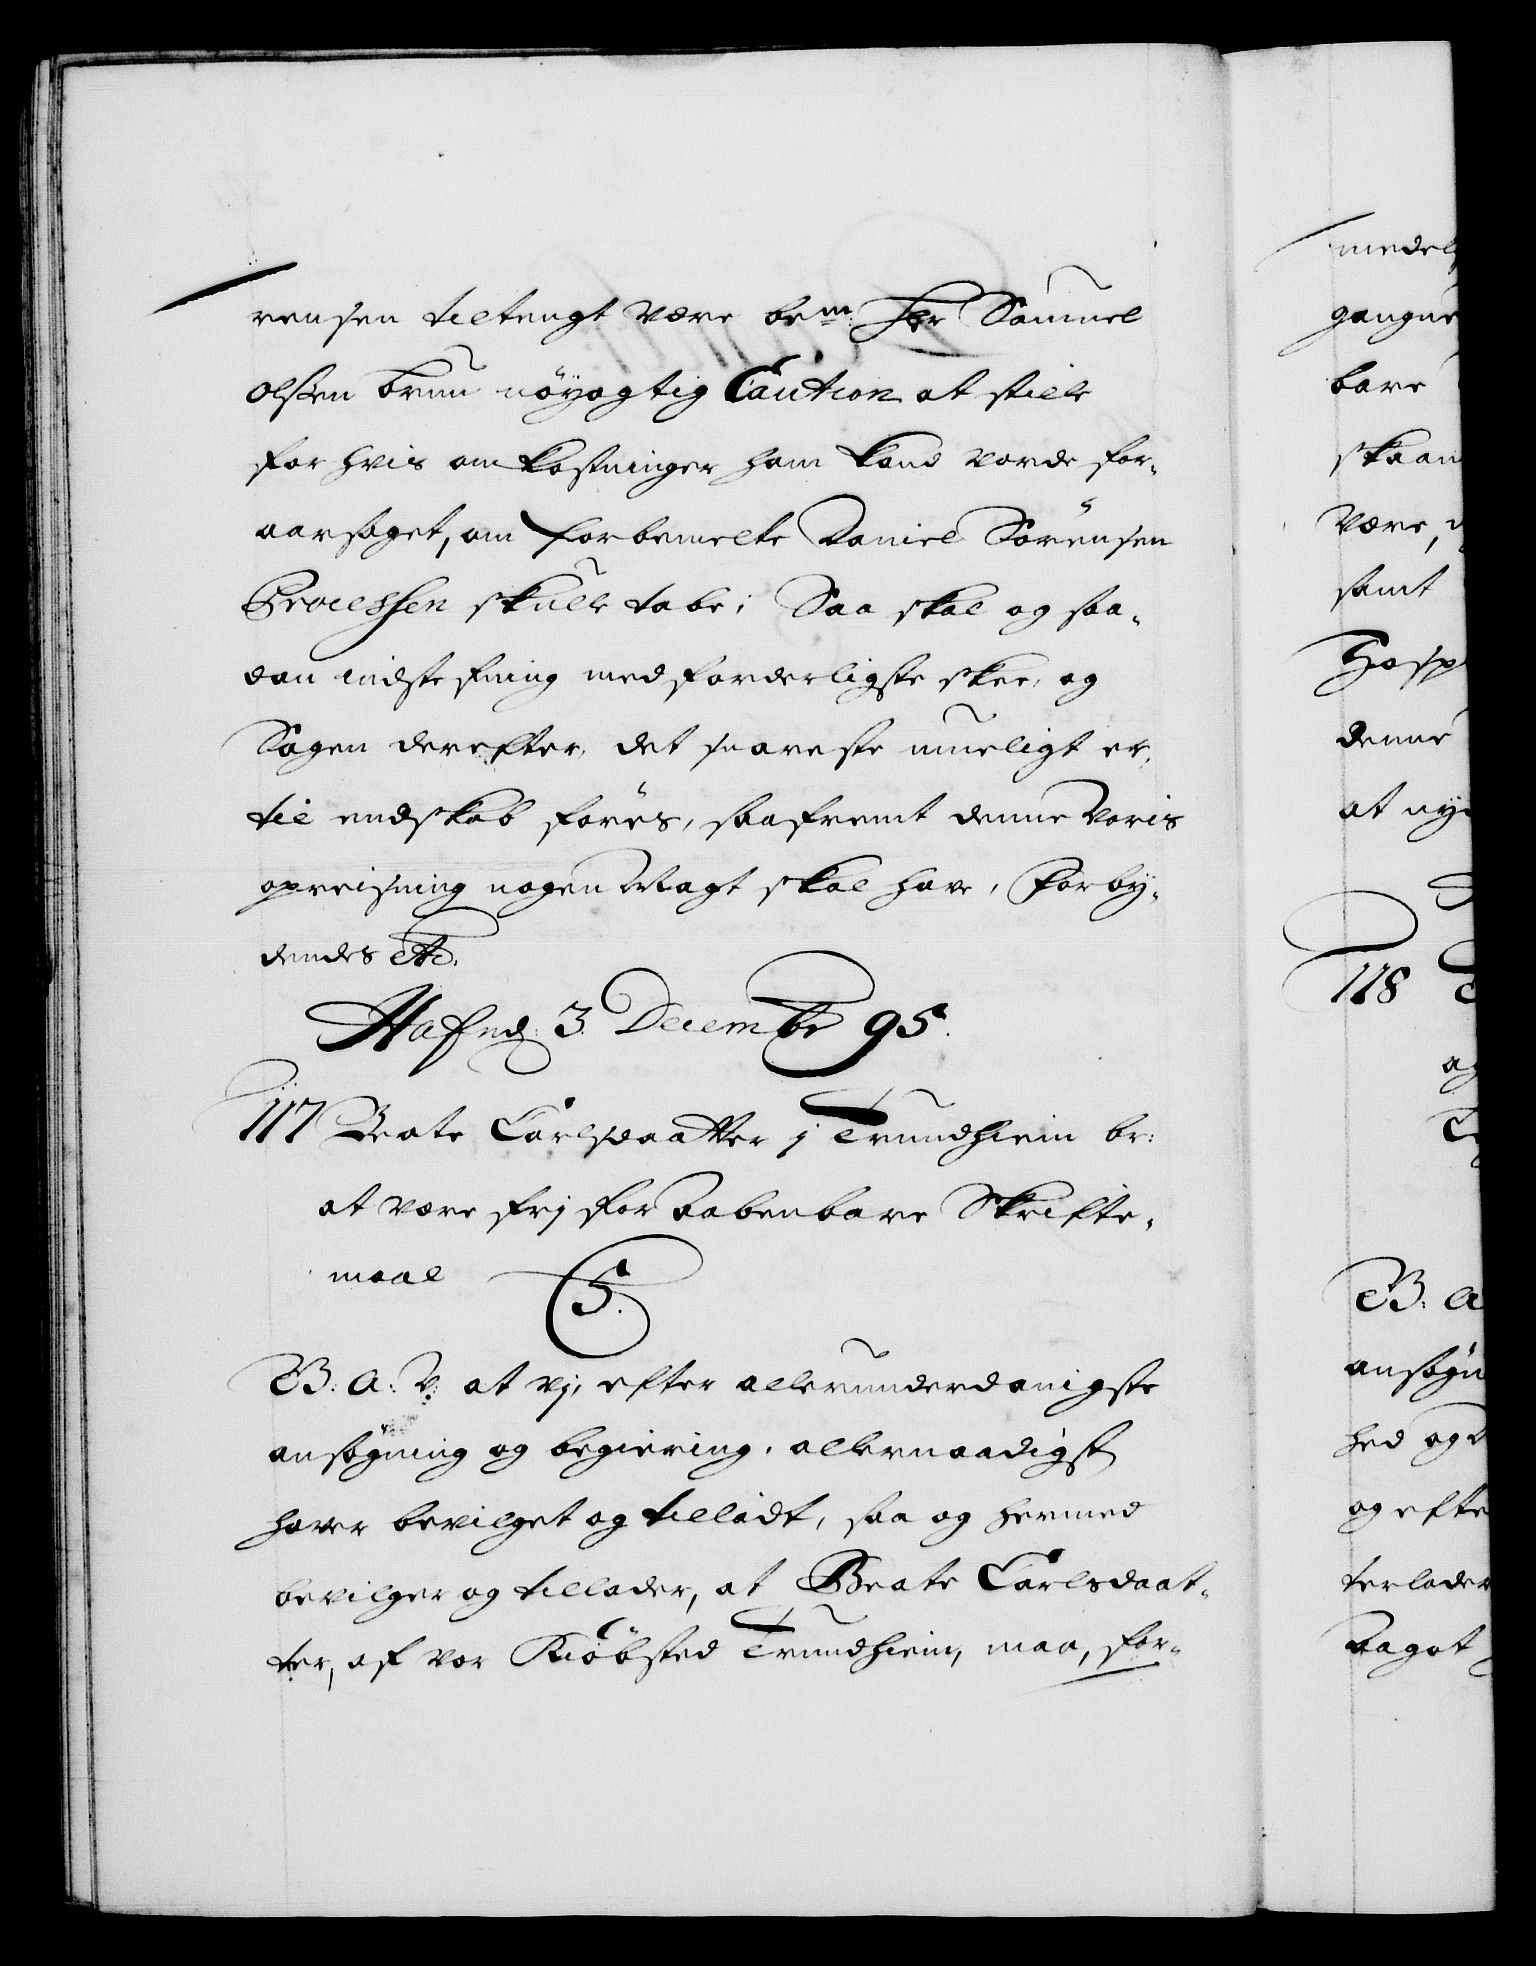 rensen tiltengt være bem: Hr Samuel
Olssen bruu nöyagtig Caution at stille
for hvis omkostninger ham kand vorde for-
aarsaget, om forbemelte Daniel Sörensen
Processen skulle tabe; Saa skal og saa-
dan indstefning med forderligste skee, og
Sagen derefter, det snareste mueligt er,
til endskab föres, saafremt denne Voris
opreisning nogen Magt skal have, Forby-
dendes etc.
Hafn: 3 Decembr 95.
117 Beate Carlsdaatter j Trundhiem br:
at være frj for aabenbare Skrifte-
maal
S.
B: A: V: at Vj, efter allerunderdanigste
ansögning og begiering, allernaadigst
haver bevilget og tilladt, saa og hermed
bevilger og tillader, at Beate Carlsdaat-
ter, af vor Kiöbsted Trundhiem, maa, for-
medels
gangne
bare
skaan
være,
samt
Hosp
denne
at nyd
118
og
B: A
ansögn
hed og
og efte
terlader
Aaget